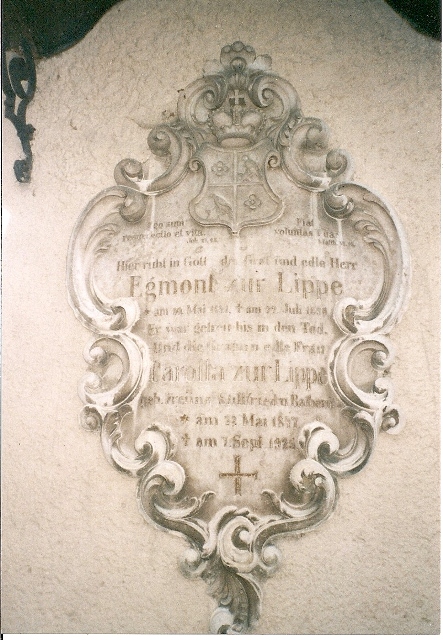 Ego sum
resurrectio et vita.
Fiat
voluntas tua.
Hier ruht in Gott der Graf und edle Herr
Egmont zur Lippe
* am 10. Mai † am 27. Juli
Er war getreu bis in den Tod.
Und die Gräfin u. edle Frau
Carolla zur Lippe
geb.
* am 22 Mai 1857
† am 7. Sept